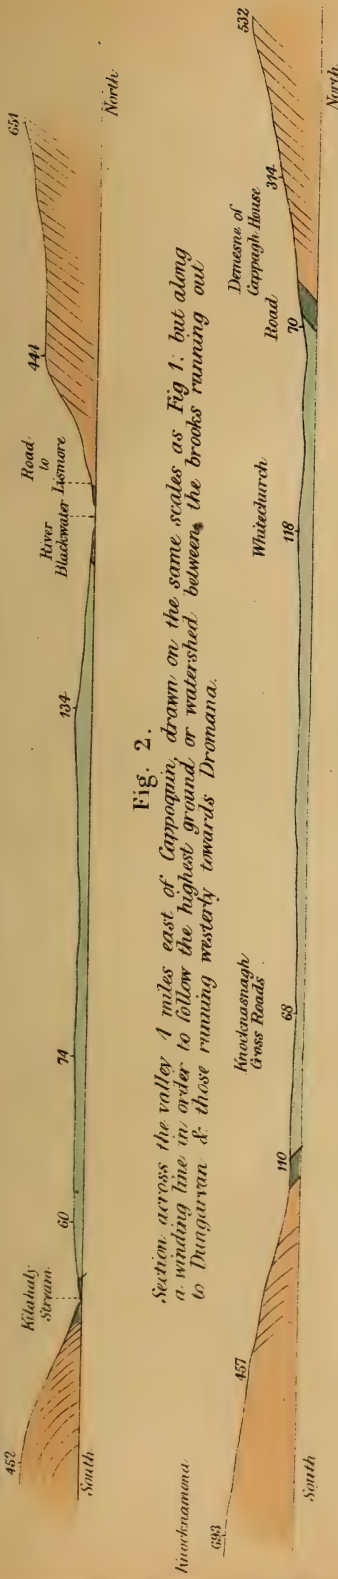 452
Kilahaly
Stream
60
74
134
River
Blackwater
Road
to
Lismore
444
651
South
North
Fig. 2.
Section across the valley 4 miles east of Cappoquin, drawn on the same scales as Fig 1; but along
a winding line in order to follow the highest ground or watershed between the brooks running out
to Dungarvan & those running westerly towards Dromana.
Knocknamona
693
457
110
Knocknasnagh
Cross Roads
68
Whitechurch
118
Road
70
Demesne of
Cappagh House
314
532
South
North